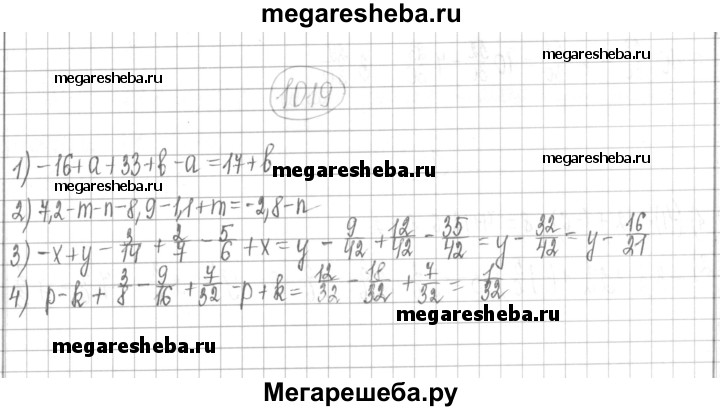 megaresheba.ru
megaresheba.ru
megaresheba.ru
1019
1) -16+a+33+b-a=17+b
megaresheba.ru
megaresheba.ru
megaresheba.ru
2) 7,2-m-n-8,9-1,1+m=-2,8-n
3) -x+y-3/14+2/7-5/6+x=y-9/42+12/42-35/42=y-32/42=y-16/21
4) p-k+3/8-9/16+7/32-p+k=12/32-18/32+7/32=1/32
megaresheba.ru
megaresheba.ru
Мегарешеба.ру